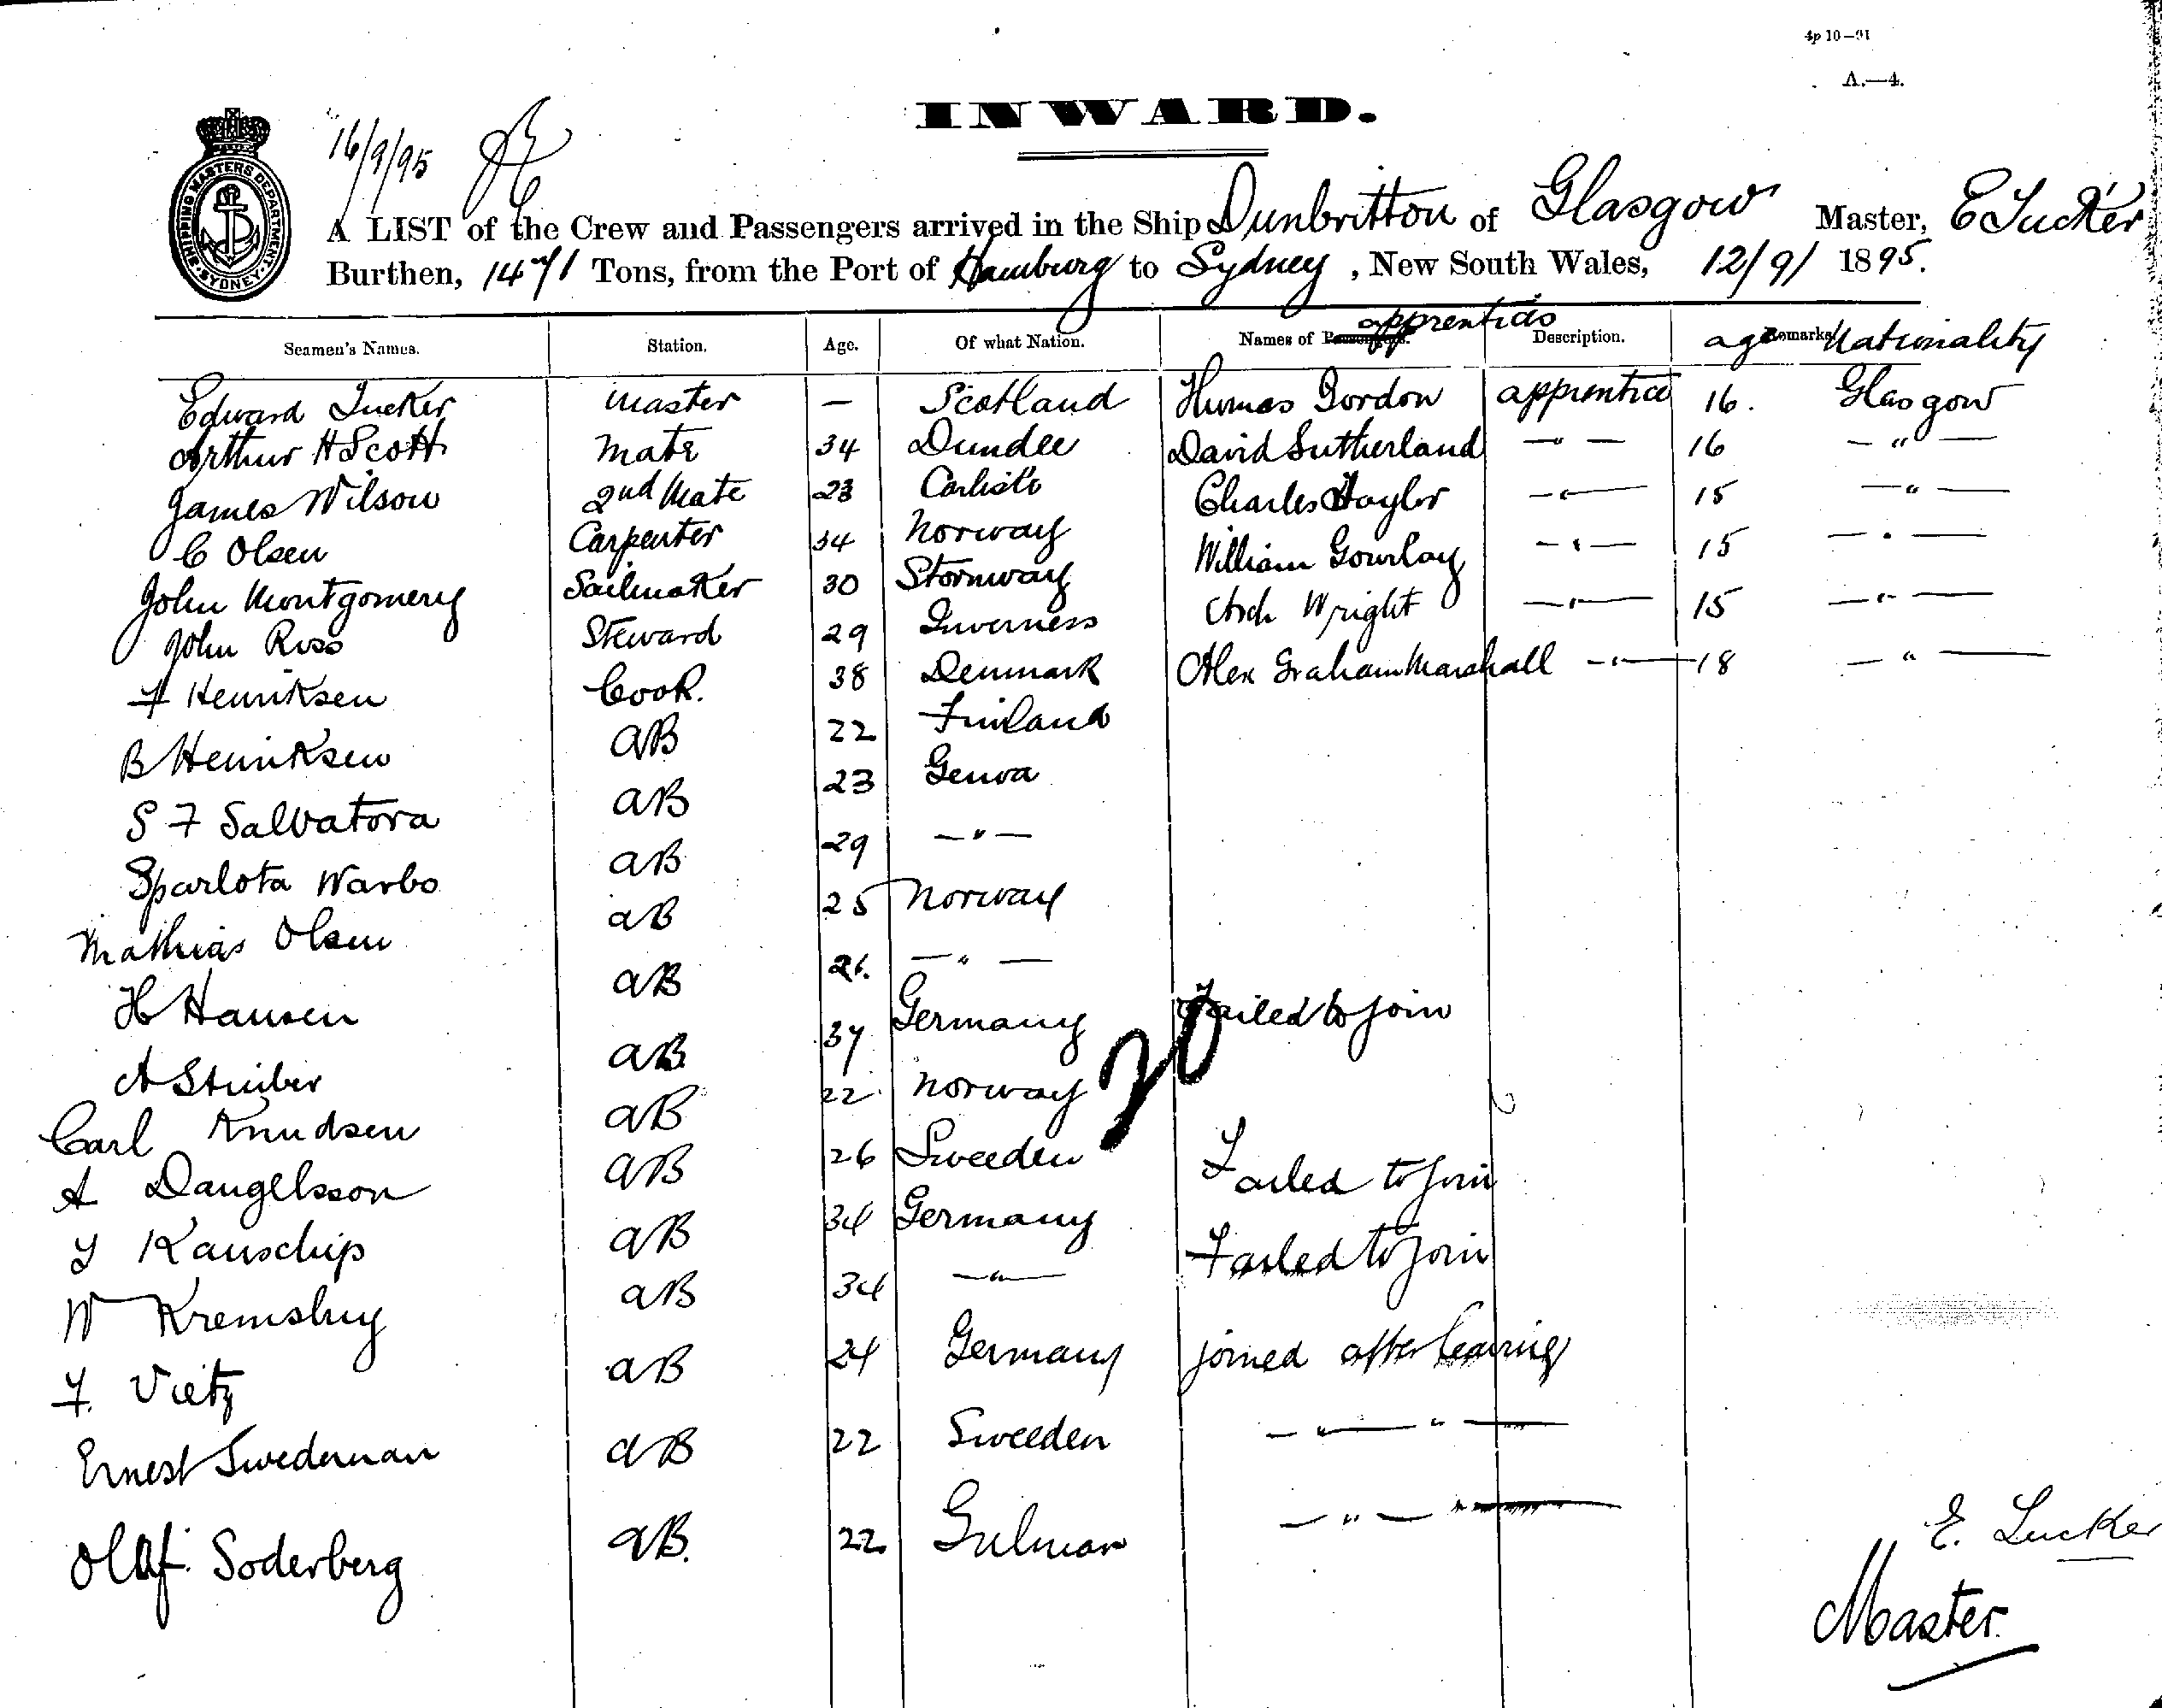 4p 10—91
A.—4.
INWARD.
16/9/95
SHIPPING MASTERS DEPARTMENT SYDNEY
A LIST of the Crew and Passengers arrived in the Ship Dunbritton of Glasgow Master, E Tucker
Burthen, 1471 Tons, from the Port of Hamburg to Sydney, New South Wales, 12/9/ 1895.
Seamen's Names. Station. Age. Of what Nation. Names of Passengers. apprentices Description. age Remarks Nationality
Edward Tucker master — Scotland Thomas Gordon apprentice 16. Glasgow
Arthur H Scott mate 34 Dundee David Sutherland — " — 16 — " —
James Wilson 2nd Mate 23 Carlisle Charles Taylor — " — 15 — " —
C Olsen Carpenter 34 Norway William Gourlay — " — 15 — " —
John Montgomery Sailmaker 30 Stornway Arch Wright — " — 15 — " —
John Ross Steward 29 Inverness Alex Graham Marshall — " — 18 — " —
F Henriksen Cook. 38 Denmark
B Henriksen AB 22 Finland
S F Salvatora AB 23 Genoa
Sparlota Warbo AB 29 — " —
Mathias Olsen AB 25 Norway
H Hansen AB 26. — " —
A Stuiber AB 37 Germany Failed to join
20
Carl Knudsen AB 22 Norway
A Dangelsson AB 26 Sweeden Failed to join
Kauschip AB 34 Germany Failed to join
W AB 34 — " —
F. Vietz AB 24 Germany joined after leaving
Ernest Swederman AB 22 Sweeden — " — " —
Olaf Soderberg AB. 22 — " —
E. Tucker
Master